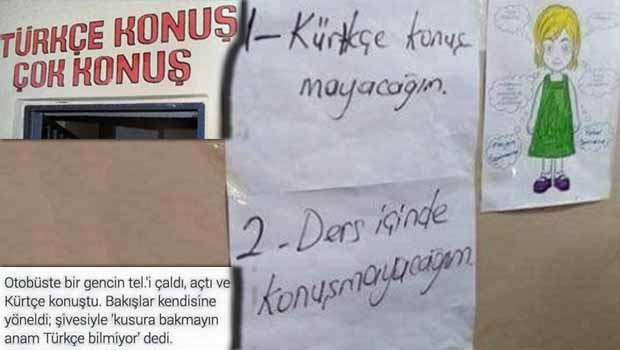 TÜRKÇE KONUŞ
ÇOK KONUŞ
1- Kürtkçe konuş
mayacağım.
2- Ders içinde
konuşmayacağım.
Otobüste bir gencin tel.'i çaldı, açtı ve
Kürtçe konuştu. Bakışlar kendisine
yöneldi; şivesiyle 'kusura bakmayın
anam Türkçe bilmiyor' dedi.